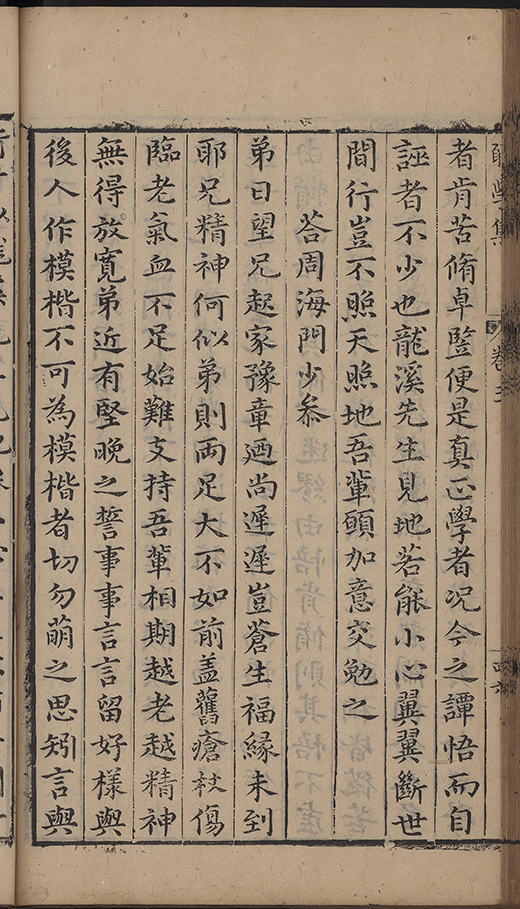 者肯苦脩卓豎便是真正學者况今之譚悟而自
誣者不少也龍溪先生見地若能小心翼翼斷世
間行豈不照天照地吾輩願加意交勉之
荅周海門少叅
弟日望兄起家豫章廼尚遲遲豈蒼生福縁未到
耶兄精神何似弟則両足大不如前盖舊瘡杖傷
臨老氣血不足始難支持吾輩相期越老越精神
無得放寬弟近有堅晚之誓事事言言留好樣與
後人作模楷不可為模楷者切勿萌之思矧言與